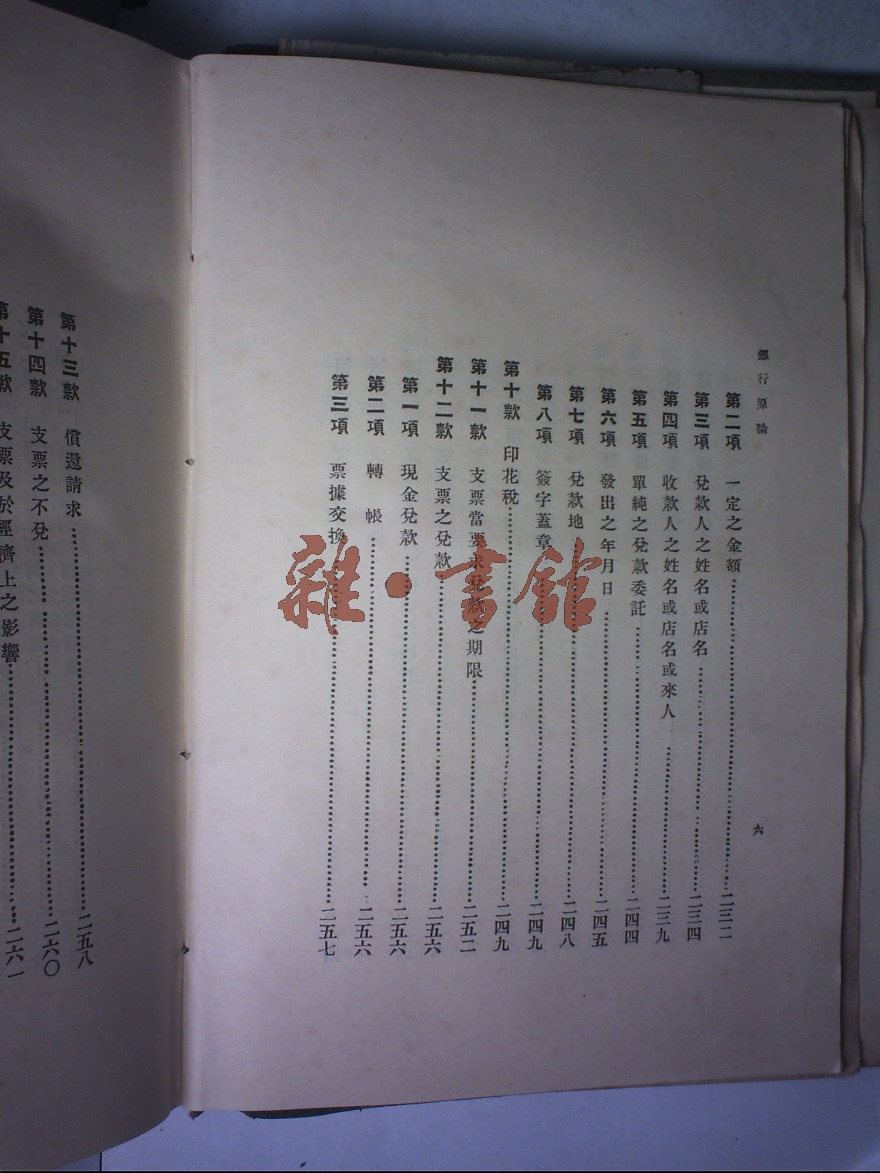 銀行原論
六
第二項 一定之金額 二三二
第三項 兌款人之姓名或店名 二三四
第四項 收款人之姓名或店名或來人 二三九
第五項 單純之兌款委託 二四四
第六項 發出之年月日 二四五
第七項 兌款地 二四八
第八項 簽字蓋章 二四九
第十款 印花稅 二四九
第十一款 支票當要求兌款之期限 二五二
第十二款 支票之兌款 二五六
第一項 現金兌款 二五六
第二項 轉帳 二五六
第三項 票據交換 二五七
第十三款 償還請求 二五八
第十四款 支票之不兌 二六〇
第十五款 支票及於經濟上之影響 二六一
雜·書館